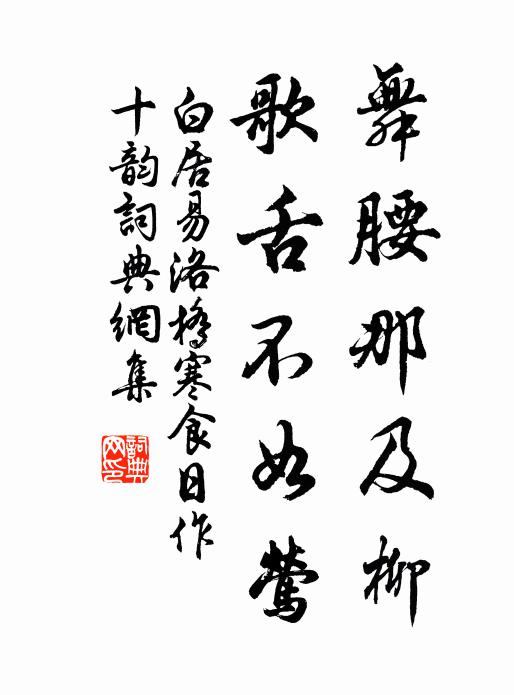 舞腰那及柳
歌舌不如鶯
白居易洛橋寒食日作
十韵詞典網集
詞典网印